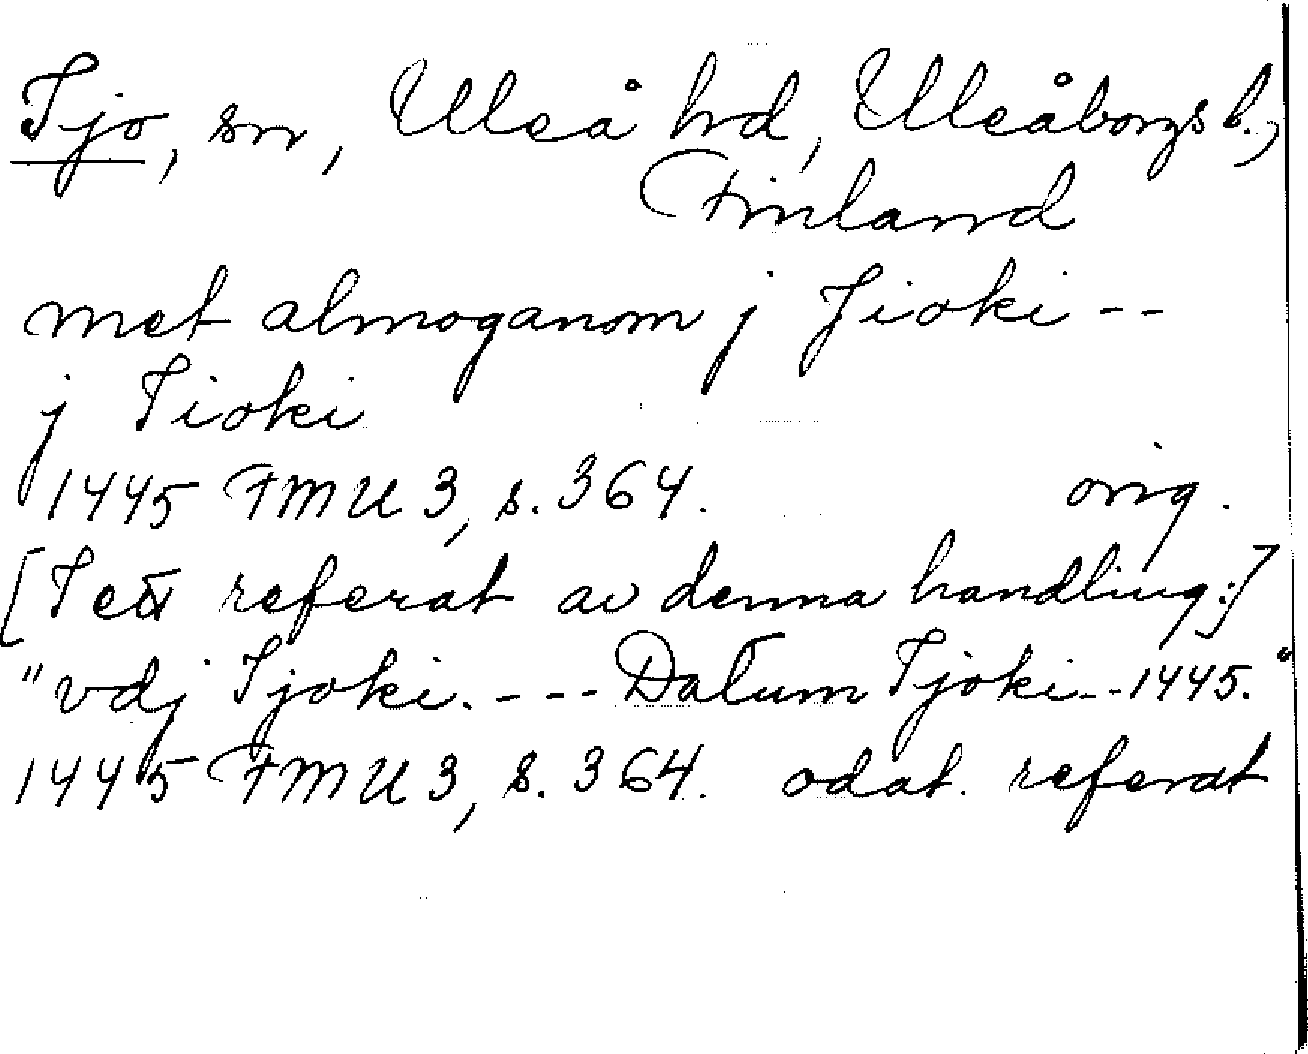 Ijo, sn, Uleå hd, Uleåborgs l.,
Finland
met almoganom j Jioki --
j Iioki
1445 FMU 3, s. 364. orig.
[I ett referat av denna handling:]
"vdj Ijoki. --- Datum Ijoki -- 1445."
1445 FMU 3, s. 364. odat. referat